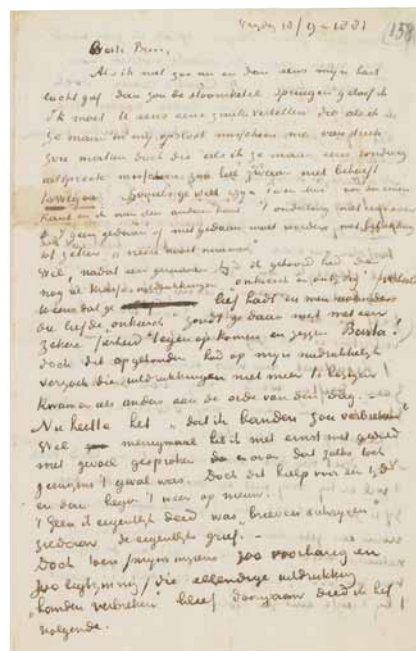 Vrijdag 18/9-1881
158
Beste Broer,
Als ik niet zoo nu en dan eens mijn hart
lucht gaf dan zou de stoomketel springen geloof ik
Ik moet U eens eene zaak vertellen die als ik
ze maar in mij opsloot misschien me van streek
zou maken doch die als ik ze maar eens rondweg
uitspreek misschien zoo heel zwaar niet behoeft
te wegen.
kant en ik aan den andere kant
't geen gedaan of niet gedaan moet worden, met betrekking
tot zekere „neen nooit nimmer"
Wel, nadat een geruimen tijd ik gehoord had de
nog al uitdrukkingen „onkiesch en ontijdig"
lief hadt en men
die liefde „onkiesch" zoudt ge daar niet met een
zekere fierheid tegen op komen en zeggen Basta!
doch dit opgehouden had op mijn nadrukkelijk
verzoek die uitdrukkingen niet meer te bezigen
kwam er iets anders aan de orde van den dag. –
Nu heette het „dat ik banden zou verbreken"
Wel menigmaal heb ik met ernst met geduld
met gevoel gesproken er over dat zulks toch
geenszins 't geval was. Doch dit hielp voor een tijd
en dan begon 't weer op nieuw.
't Geen ik eigentlijk deed was „brieven schrijven"
ziedaar de eigentlijke grief. –
Doch toen /mijns inziens zoo voorbarig en
zoo ligtzinnig/ die ellendige uitdrukking
„banden verbreken" bleef doorgaan deed ik het
volgende.